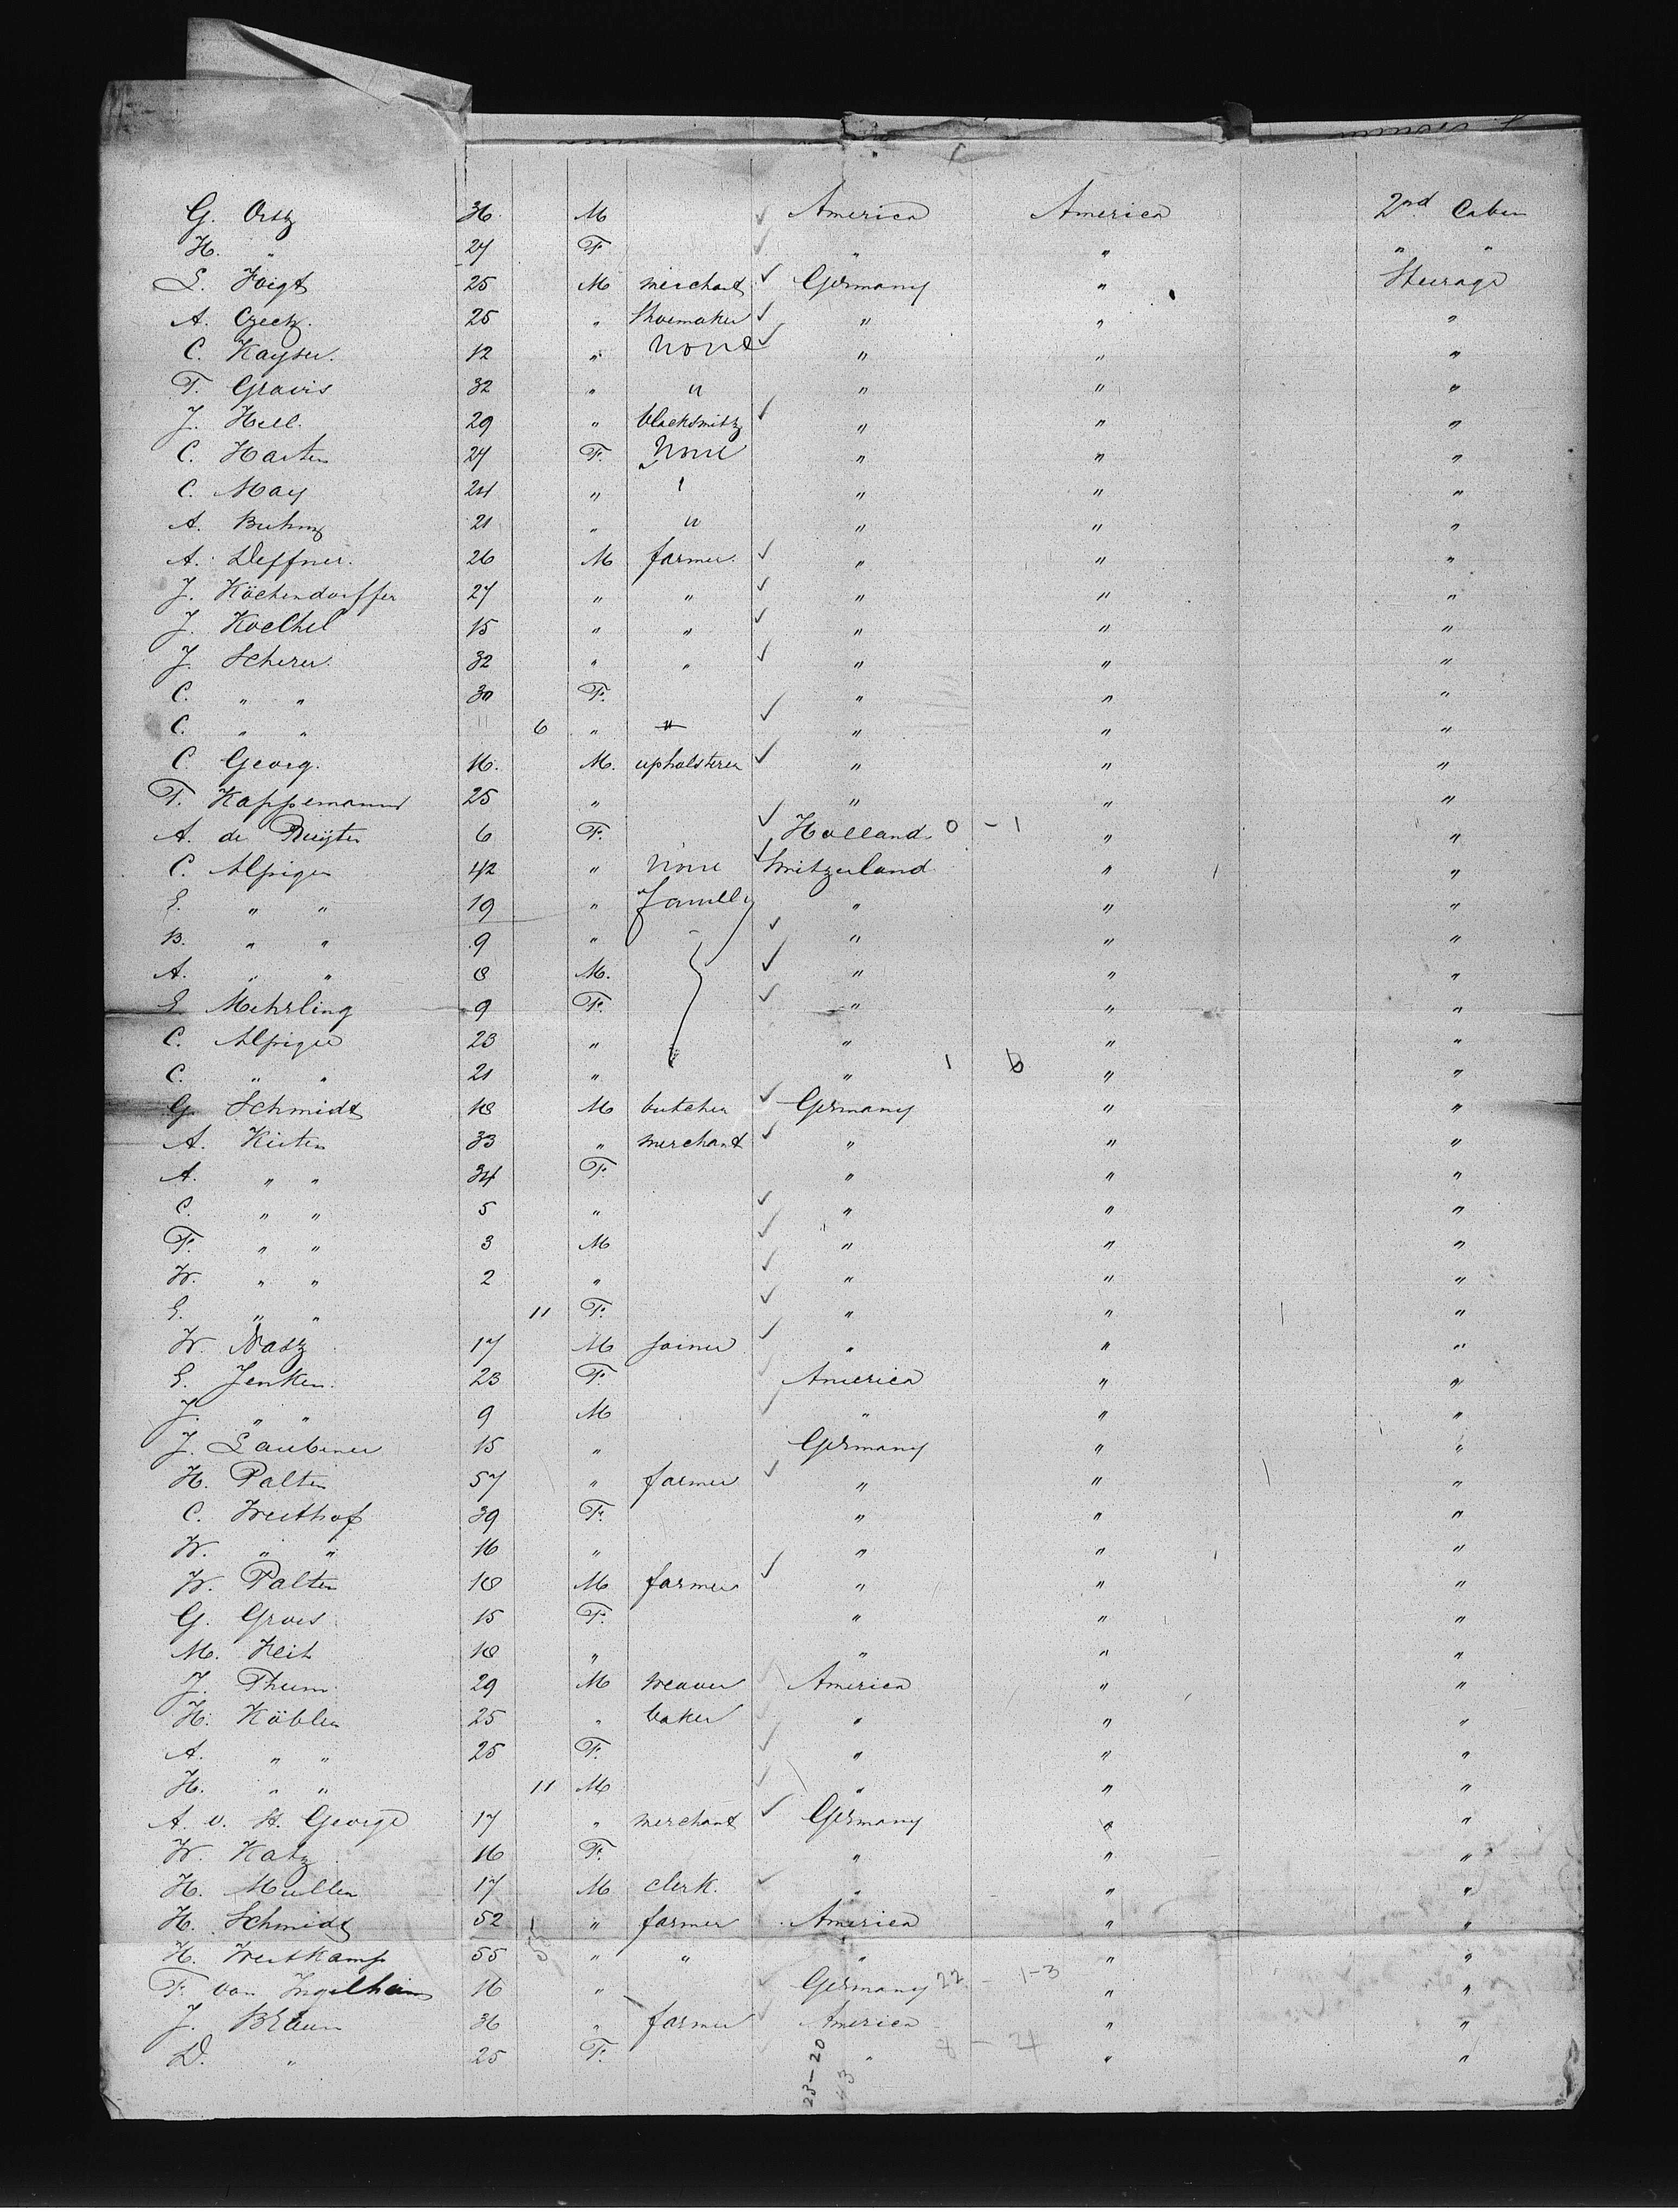 G. Ortz 36. M America America 2nd Cabin
H. " 27 F. " " " "
L. Voigt 25 M merchant Germany " Steerage
A. Czech. 25 " Shoemaker " " "
C. Kayser. 12 " None " " "
F. Gravis 32 " " " " "
J. Hell. 29 " blacksmith " " "
C. Harten 27 F. None " " "
C. May 24 " " " " "
A. 21 " " " " "
A. Deffner. 26 M farmer. " " "
J. Köchendorffer 27 " " " " "
J. Koechel 15 " " " " "
J. Scherer 32 " " " " "
C. " " 30 F. " " "
C. " " 6 " " " " "
C. Georg. 16. M. upholsterer " " "
F. Kappemann 25 " " " "
A. de Ruyter 6 F. Holland. 0 - 1 " "
C. Alpiger 42 " None Switzerland " "
E. " " 19 " family " " "
B. " " 9 " " " "
A. " " 8 M. " " "
E. Mehrling 9 F. " " "
C. Alpiger 23 " " " "
C. " " 21 " " 1 6 " "
G. Schmidt 18 M butcher Germany " "
A. Kirten 33 " merchant " " "
A. " " 34 F. " " "
C. " " 5 " " " "
F. " " 3 M " " "
W. " " 2 " " " "
E. " " 11 F. " " "
W. Natz 17 M joiner " " "
E. Jenken. 23 F. America " "
J. " " 9 M " " "
J. Laubener 15 " Germany " "
H. Palten 57 " farmer " " "
C. Westhof 39 F. " " "
W. " " 16 " " " "
W. Palten 18 M farmer " " "
G. Groes 15 F. " " "
M. Heit 18 " " " "
J. Thum 29 M weaver America " "
H. Köbler 25 " baker " " "
A. " " 25 F. " " "
H. " " 11 M " " "
A. v. St. George 17 " merchant Germany " "
W. Katz 16 F. " " "
H. Muller 17 M clerk. " " "
H. Schmidt 52 " farmer America " "
H. Westkamp 55 " " " " "
F. von Ingelheim 16 " Germany 22 - 1-3 " "
J. Braun 36 " farmer America " "
D. " 25 F. " " "
23-20
43